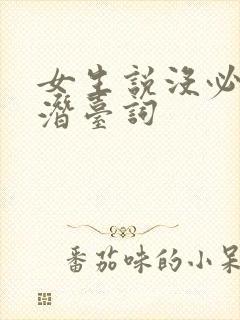 女生説没必
潛臺詞
番茄味的小呆